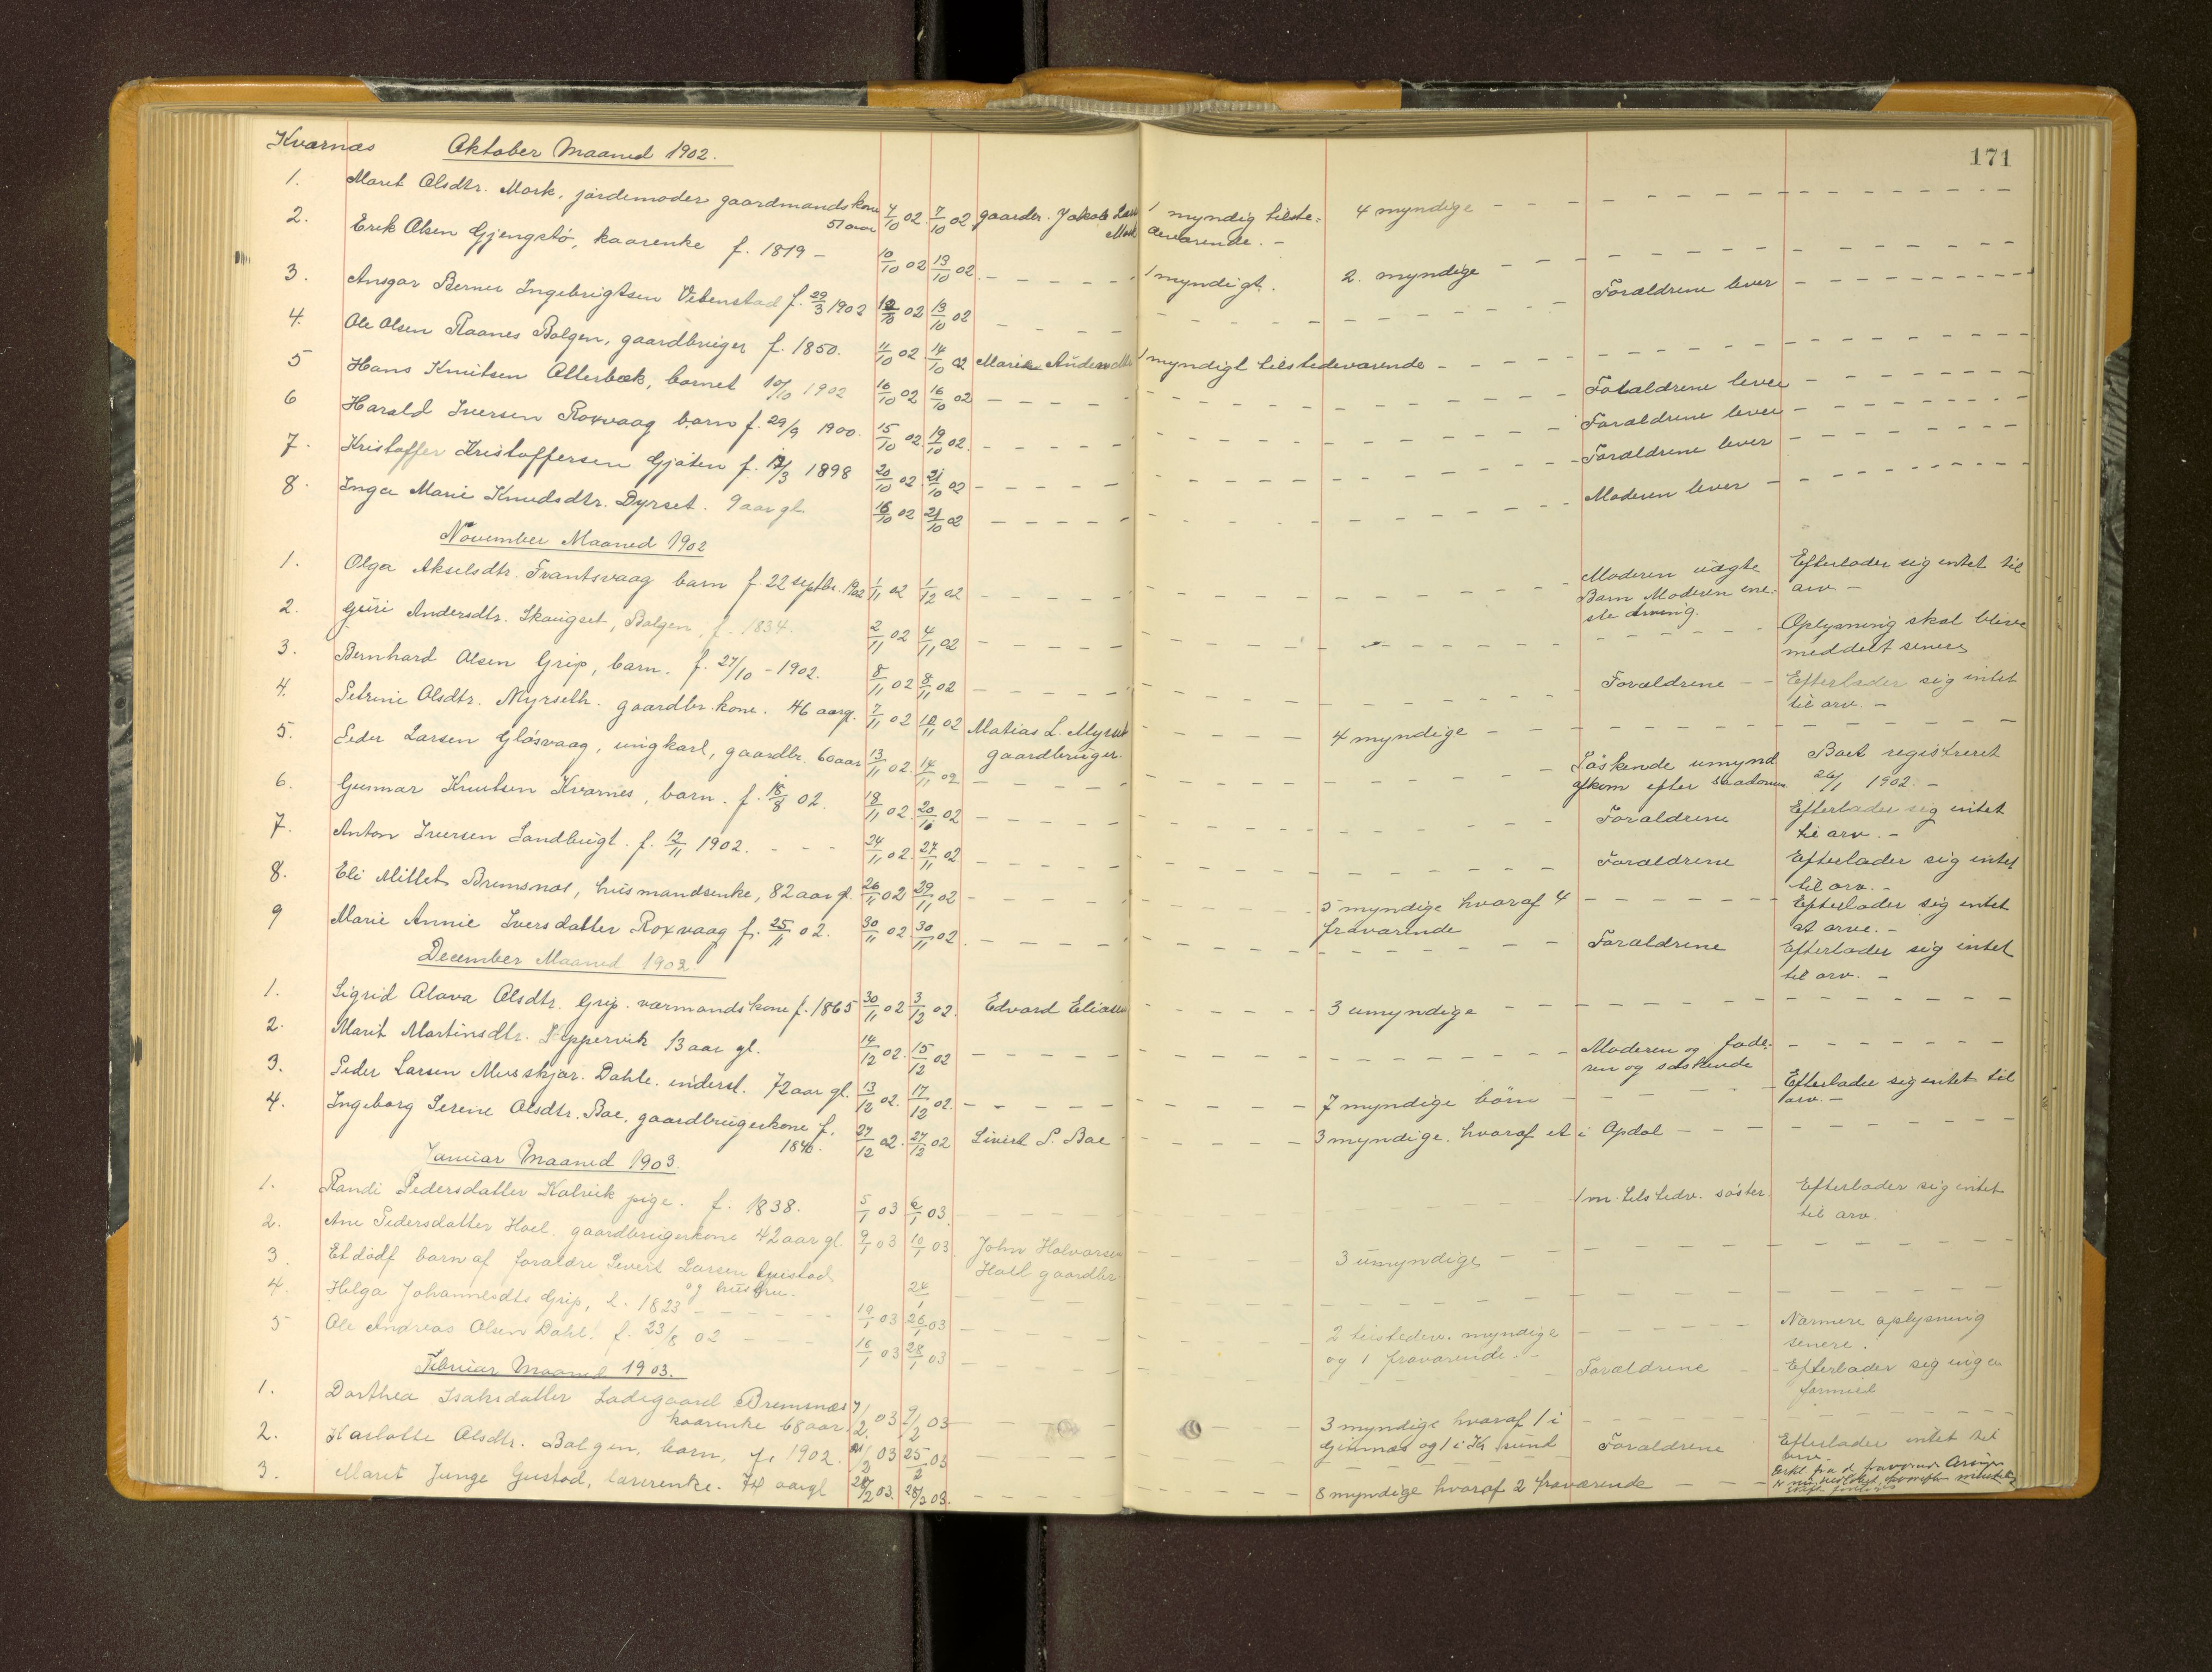 171
Kvarnæs Oktober Maaned 1902.
1. Marit Olsdtr. Mork, jordemoder gaardmandskone 57 aar 4/10 02. 7/10 02 gaardbr. Jakob Lars Mork 1 myndig tilste= deværende. - 4 myndige
2. Erik Olsen Gjengstø, kaarenke f. 1819 - 10/10 02 13/10 02. 1 myndigt. 2. myndige
3. Ansgar Berner Ingebrigtsen Vebenstad f. 29/3 1902 12/10 02 13/10 02 Forældrene lever
4. Ole Olsen Raanes Bolgen, gaardbruger f. 1850. 11/10 02 14/10 02 Marie Andersdtr 1 myndigt tilstedeværende
5 Hans Knutsen Otterbæk, barnet 10/10 1902 16/10 02 16/10 02 Forældrene lever
6 Harald Iversen Roxvaag barn f. 29/9 1900. 15/10 02. 19/10 02. Forældrene lever
7. Kristoffer Kristoffersen Gjøten f. 12/3 1898 20/10 02 21/10 02 Forældrene lever
8. Inga Marie Knudsdtr. Dyrset. 9 aar gl. 16/10 02 21/10 02 Moderen lever
November Maaned 1902
1. Olga Akselsdtr. Frantsvaag barn f. 22 septbr. 1902 1/11 02 1/12 02 Moderen uægte Barn Moderen ene= ste arving. Efterlader sig intet til arv -
2. Guri Andersdtr. Skaugset, Bolgen, f. 1834. 2/11 02 4/11 02 Oplysning skal blive meddelt senere
3. Bernhard Olsen Grip, barn. f. 27/10 - 1902. 8/11 02 8/11 02 Forældrene Efterlader sig intet til arv. -
4. Petrine Olsdtr. Myrseth. gaardbr. kone. 46 aar g. 7/11 02 10/11 02 Matias L. Myrset gaardbruger. 4 myndige
5. Peder Larsen Gløsvaag, ungkarl, gaardbr. 60 aar 13/11 02. 14/11 02 Søskende umynd afkom efter saadanne Boet registreret 26/11 1902. -
6. Gunnar Knutsen Kvarnes, barn. f. 18/8 02. 18/11 02. 20/11 02 Forældrene Efterlader sig intet til arv. -
7. Anton Iversen Sandbugt. f. 12/11 1902. 24/11 02. 27/11 02 Forældrene Efterlader sig intet til arv. -
8. Eli Millet Bremsnæs, husmandsenke, 82 aar gl. 26/11 02 29/11 02 5 myndige hvoraf 4 fraværende Efterlader sig intet at arve. -
9 Marie Annie Iversdatter Roxvaag f. 25/11 02. 30/11 02. 30/11 02. Forældrene Efterlader sig intet til arv. -
December Maaned 1902
1. Sigrid Olava Olsdtr. Grip. værmandskone f. 1865 30/11 02 3/12 02. Edvard Eliassen 3 umyndige
2. Marit Martinsdtr. Teppervik 13 aar gl. 14/12 02. 15/12 02 Moderen og fade= ren og søskende
3. Peder Larsen Musskjær. Dahle. inderst. 72 aar gl. 13/12 02. 17/12 02. 7 myndige børn Efterlader sig intet til arv. -
4. Ingeborg Serene Olsdtr. Boe. gaardbrugerkone f. 1846. 27/12 02. 27/12 02 Sivert P. Boe 3 myndige. hvoraf et i Opdal
Januar Maaned 1903.
1. Randi Pedersdatter Kolvik pige. f. 1838. 5/1 03 6/1 03. 1 m. tilstedv. søster. Efterlader sig intet til arv.
2. Ane Pedersdatter Hoel. gaardbrugerkone 42 aar gl. 9/1 03 10/1 03. John Halvorsen Hoel gaardbr. 3 umyndige
3 Et dødf barn af forældre Sivert Larsen og hustru. 24/1
4. Helga Johannesdtr Grip, f. 1823 19/1 03 26/1 03 2 tilstedev. myndige og 1 fraværende. - Nærmere oplysning senere.
5 Ole Andreas Olsen Dahl. f. 23/8 02 16/1 03 28/1 03 Forældrene Efterlader sig ingen formue
Februar Maaned 1903.
1. Dorthea Isaksdatter Ladegaard Bremsnæs kaarenke 68 aar. 7/2 03 9/2 03 3 myndige hvoraf 1 i Gimnæs og 1 i Kr. sund
2. Karlotte Olsdtr. Bolgen, barn, f. 1902. 03 25/2 03 Forældrene Efterlader intet til arv.
3. Maret Junge Gustad, lærerenke. 74 aar gl 28/2 03. 8 myndige hvoraf 2 fraværende